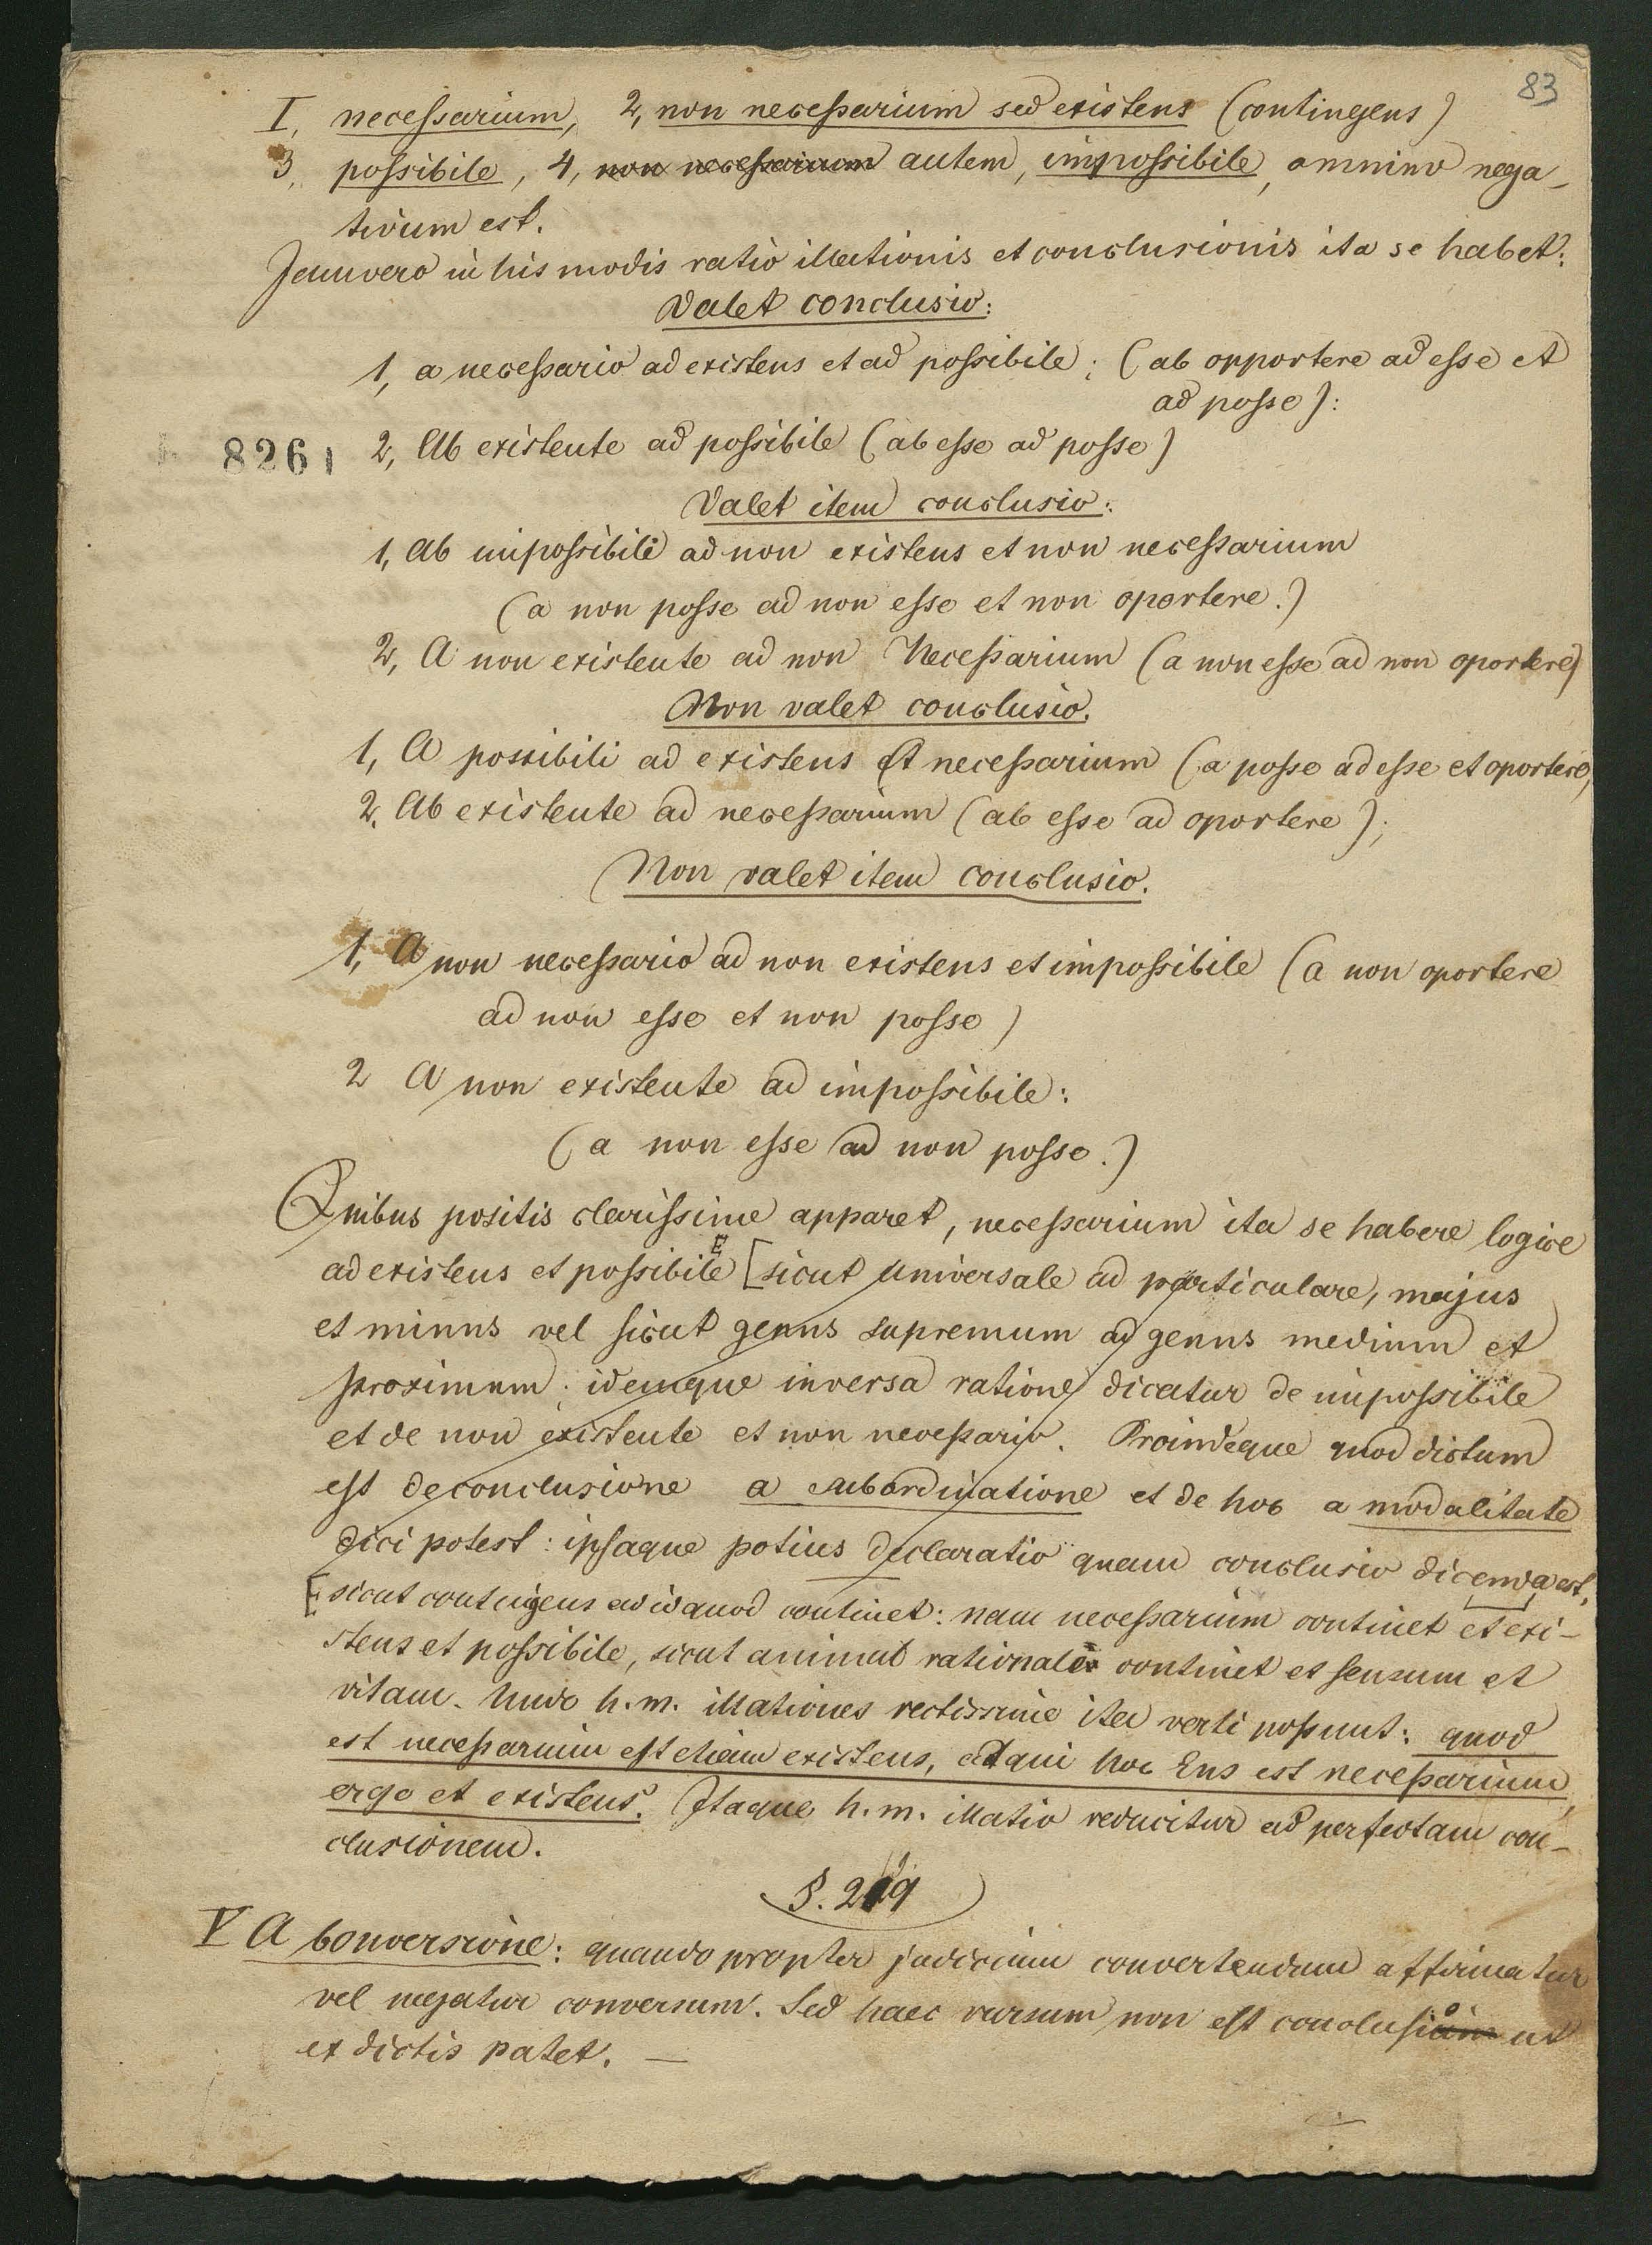 83
I, necessarium, 2, non necessarium sed existens (contingens)
3, possibile, 4, non necessarium autem, impossibile, omnino nega-
tivum est.
Jamvero in his modis ratio illationis et conclusionis ita se habet:
Valet conclusio:
1, a necessario ad existens et ad possibile; (ab opportere ad esse et
ad posse):
8261
2, Ab existente ad possibile (ab esse ad posse)
Valet item conclusio:
1, Ab impossibili ad non existens et non necessarium
(a non posse ad non esse et non oportere.)
2, A non existente ad non Necessarium (a non esse ad non oportere)
Non valet conclusio.
1, A possibili ad existens et necessarium (a posse ad esse et oportere,
2. Ab existente ad necessarium (ab esse ad oportere);
Non valet item conclusio.
1, A non necessario ad non existens et impossibile (a non oportere
ad non esse et non posse)
2 A non existente ad impossibile:
(a non esse ad non posse.)
Quibus positis clarissime apparet, necessarium ita se habere logice
ad existens et possibile [sicut universale ad particulare, majus
et minus vel sicut genus supremum ad genus medium et
proximum. idemque inversa ratione dicatur de impossibile
et de non existente et non necessario. Proindeque quod dictum
est de conclusione a subordinatione et de hoc a modalitate
dici potest: ipsaque potius declaratio quam conclusio dicenda est,
[sicut contingens ad id quod continet: nam necessarium continet et exi-
stens et possibile, sicut animal rationale continet et sensum et
vitam. h. m. illationes rectissime ita verti possunt: quod
est necessarium est etiam existens, atqui hoc Ens est necessarium,
ergo et existens. Itaque h. m. illatio reducitur ad perfectam con-
clusionem.
§. 219
V A conversione: quando propter judicium convertendum affirmatur
vel negatur conversum. Sed haec rursum non est conclusio ut
ex dictis patet. —